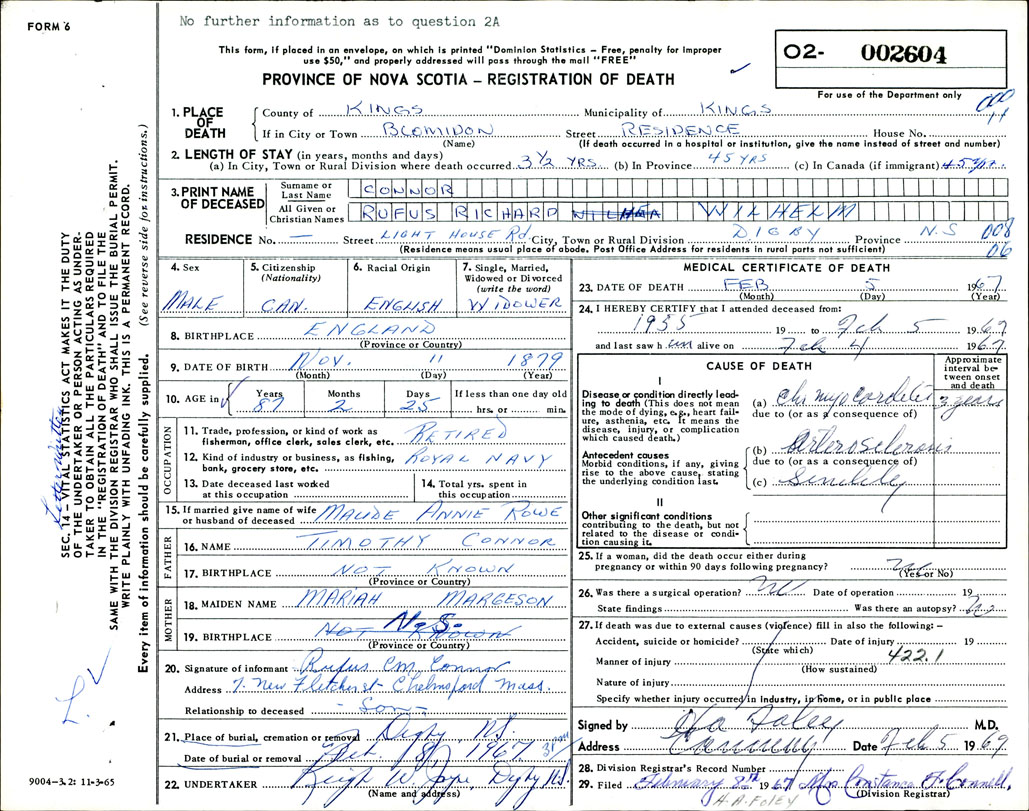 No further information as to question 2A
FORM 6
This form, if placed in an envelope, on which is printed "Dominion Statistics – Free, penalty for improper
use $50," and properly addressed will pass through the mail "FREE"
PROVINCE OF NOVA SCOTIA – REGISTRATION OF DEATH
O2- 002604
For use of the Department only
1. PLACE OF DEATH
County of KINGS Municipality of KINGS
If in City or Town BLOMIDON Street RESIDENCE House No.
(Name) (If death occurred in a hospital or institution, give the name instead of street and number)
2. LENGTH OF STAY (in years, months and days)
(a) In City, Town or Rural Division where death occurred 3 1/2 YRS (b) In Province 45 YRS (c) In Canada (if immigrant) 45 yr.
3. PRINT NAME OF DECEASED
Surname or Last Name CONNOR
All Given or Christian Names RUFUS RICHARD WILHELM
RESIDENCE No. — Street LIGHT HOUSE Rd. City, Town or Rural Division DIGBY Province N.S 008
(Residence means usual place of abode. Post Office Address for residents in rural parts not sufficient) 06
4. Sex MALE
5. Citizenship (Nationality) CAN.
6. Racial Origin ENGLISH
7. Single, Married, Widowed or Divorced (write the word) WIDOWER
8. BIRTHPLACE ENGLAND
(Province or Country)
9. DATE OF BIRTH NOV. 11 1879
(Month) (Day) (Year)
10. AGE in Years 87 Months 2 Days 25 If less than one day old hrs. or min.
OCCUPATION
11. Trade, profession, or kind of work as fisherman, office clerk, sales clerk, etc. RETIRED
12. Kind of industry or business, as fishing, bank, grocery store, etc. ROYAL NAVY
13. Date deceased last worked at this occupation
14. Total yrs. spent in this occupation
15. If married give name of wife or husband of deceased MAUDE ANNIE ROWE
FATHER
16. NAME TIMOTHY CONNOR
17. BIRTHPLACE NOT KNOWN
(Province or Country)
MOTHER
18. MAIDEN NAME MARIAH MARGESON
19. BIRTHPLACE NOT KNOWN N.S.
(Province or Country)
20. Signature of informant Rufus C.M. Connor
Address 7. New Fletcher st Chelmsford Mass.
Relationship to deceased - Son -
21. Place of burial, cremation or removal Digby, N.S.
Date of burial or removal Feb. 8, 1967
22. UNDERTAKER Digby N.S.
(Name and address)
MEDICAL CERTIFICATE OF DEATH
23. DATE OF DEATH FEB 5 1967
(Month) (Day) (Year)
24. I HEREBY CERTIFY that I attended deceased from:
1955 19 to Feb 5 1967
and last saw h im alive on Feb 4 1967
CAUSE OF DEATH
Approximate interval between onset and death
I
Disease or condition directly leading to death (This does not mean the mode of dying, e.g., heart failure, asthenia, etc. It means the disease, injury, or complication which caused death.)
(a) Chr myocarditis 3 years
due to (or as a consequence of)
Antecedent causes
Morbid conditions, if any, giving rise to the above cause, stating the underlying condition last.
(b) Arteriosclerosis
due to (or as a consequence of)
(c) Senility
II
Other significant conditions contributing to the death, but not related to the disease or condition causing it.
25. If a woman, did the death occur either during pregnancy or within 90 days following pregnancy?
(Yes or No)
26. Was there a surgical operation? No Date of operation 19
State findings Was there an autopsy? No
27. If death was due to external causes (violence) fill in also the following: –
Accident, suicide or homicide? Date of injury 19
(State which) 422.1
Manner of injury
(How sustained)
Nature of injury
Specify whether injury occurred in industry, in home, or in public place
Signed by Foley M.D.
Address Canning Date Feb 5 1967
28. Division Registrar's Record Number
29. Filed February 8th 1967 Mrs Constance
(Division Registrar)
H.A. FOLEY
9004–3.2: 11-3-65
SEC. 14 – VITAL STATISTICS ACT MAKES IT THE DUTY
OF THE UNDERTAKER OR PERSON ACTING AS UNDER-
TAKER TO OBTAIN ALL THE PARTICULARS REQUIRED
IN THE "REGISTRATION OF DEATH" AND TO FILE THE
SAME WITH THE DIVISION REGISTRAR WHO SHALL ISSUE THE BURIAL PERMIT.
WRITE PLAINLY WITH UNFADING INK. THIS IS A PERMANENT RECORD.
Every item of information should be carefully supplied. (See reverse side for instructions.)